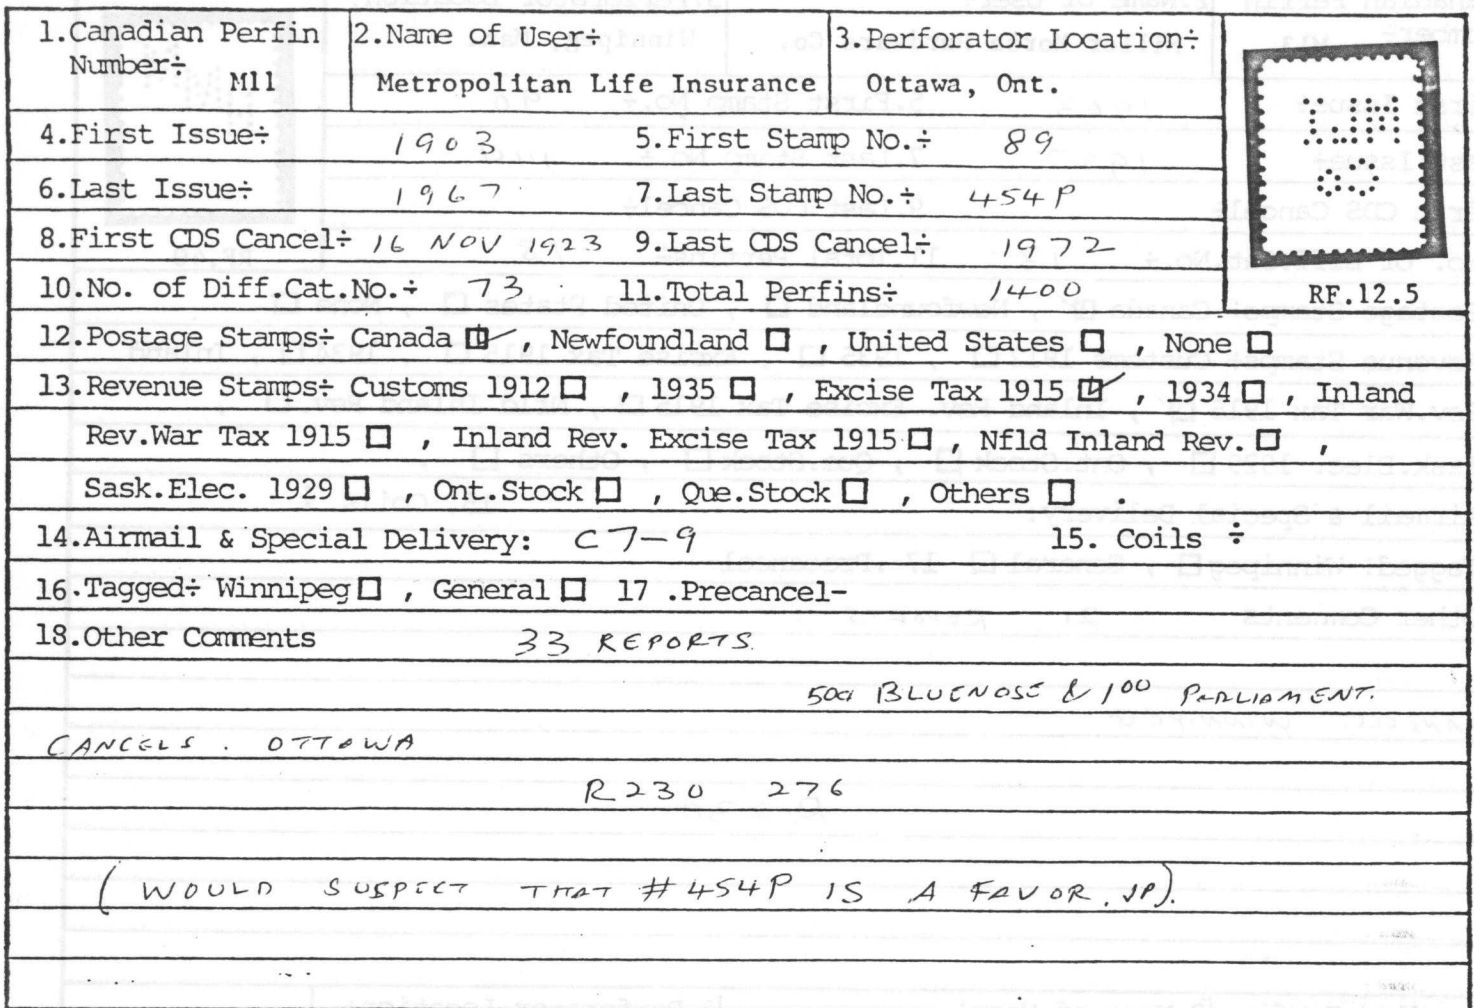 1.Canadian Perfin Number÷ M11
2.Name of User÷ Metropolitan Life Insurance
3.Perforator Location÷ Ottawa, Ont.
4.First Issue÷ 1903 5.First Stamp No.÷ 89
6.Last Issue÷ 1967 7.Last Stamp No.÷ 454P
8.First CDS Cancel÷ 16 NOV 1923 9.Last CDS Cancel÷ 1972
10.No. of Diff.Cat.No.÷ 73 11.Total Perfins÷ 1400
RF.12.5
12.Postage Stamps÷ Canada ☑, Newfoundland ☐, United States ☐, None ☐
13.Revenue Stamps÷ Customs 1912 ☐, 1935 ☐, Excise Tax 1915 ☑, 1934 ☐, Inland
Rev.War Tax 1915 ☐, Inland Rev. Excise Tax 1915 ☐, Nfld Inland Rev. ☐,
Sask.Elec. 1929 ☐, Ont.Stock ☐, Que.Stock ☐, Others ☐.
14.Airmail & Special Delivery: C7-9 15. Coils ÷
16.Tagged÷ Winnipeg ☐, General ☐ 17 .Precancel-
18.Other Comments 33 REPORTS.
50¢ BLUENOSE & 1.00 PARLIAMENT.
CANCELS . OTTOWA
R230 276
(WOULD SUSPECT THAT #454P IS A FAVOR. JP).